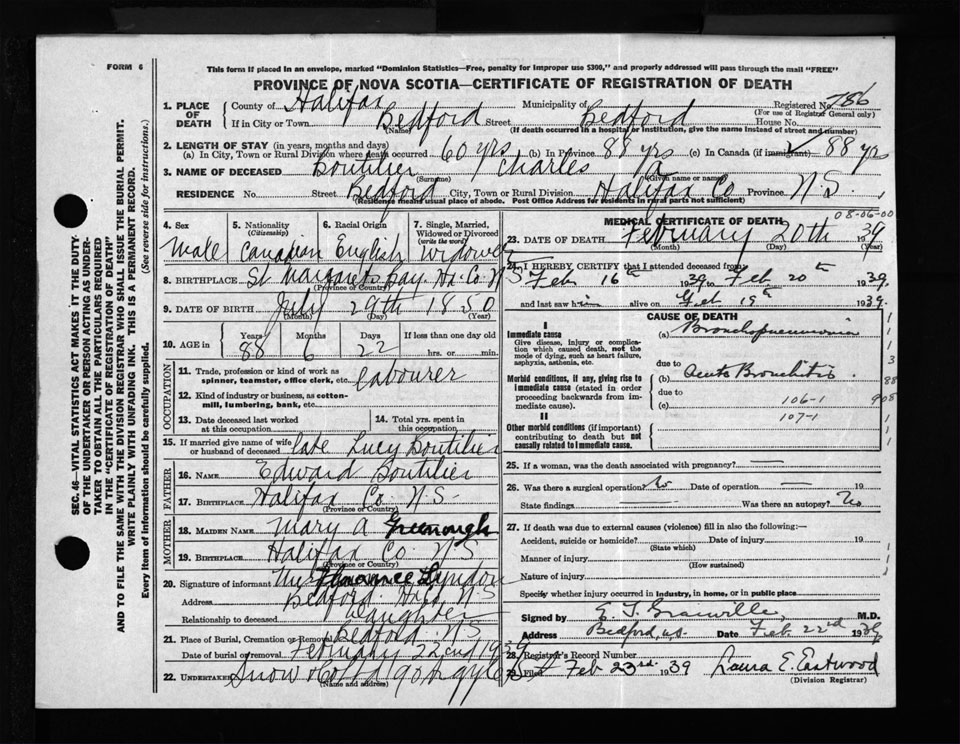 FORM 6
This form if placed in an envelope, marked "Dominion Statistics—Free, penalty for improper use $300," and properly addressed will pass through the mail "FREE"
PROVINCE OF NOVA SCOTIA—CERTIFICATE OF REGISTRATION OF DEATH
1. PLACE OF DEATH County of Halifax Municipality of Bedford Registered No. 786
(For use of Registrar General only)
If in City or Town Bedford Street House No.
(Name) (If death occurred in a hospital or institution, give the name instead of street and number)
2. LENGTH OF STAY (in years, months and days)
(a) In City, Town or Rural Division where death occurred 60 yrs (b) In Province 88 yrs (c) In Canada (if immigrant) 88 yrs
3. NAME OF DECEASED Boutilier Charles
(Surname) (Given name or names)
RESIDENCE No. Street Bedford City, Town or Rural Division Halifax Co Province N.S
(Residence means usual place of abode. Post Office Address for residents in rural parts not sufficient)
4. Sex 5. Nationality (Citizenship) 6. Racial Origin 7. Single, Married, Widowed or Divorced (write the word)
Male Canadian English Widowed
8. BIRTHPLACE St Margarets Bay. Hx. Co. N S
(Province or Country)
9. DATE OF BIRTH July 29th 1850
(Month) (Day) (Year)
10. AGE in Years Months Days If less than one day old
88 6 22 hrs. or min.
OCCUPATION
11. Trade, profession or kind of work as spinner, teamster, office clerk, etc. Labourer
12. Kind of industry or business, as cotton-mill, lumbering, bank, etc.
13. Date deceased last worked at this occupation
14. Total yrs. spent in this occupation
15. If married give name of wife or husband of deceased late Lucy Boutilier
FATHER
16. NAME Edward Boutilier
17. BIRTHPLACE Halifax Co. N.S.
(Province or Country)
MOTHER
18. MAIDEN NAME Mary A Greenough
19. BIRTHPLACE Halifax Co N S
(Province or Country)
20. Signature of informant Mrs Florance Lyndon
Address Bedford. Halif N.S
Relationship to deceased Daughter
21. Place of Burial, Cremation or Removal Bedford N S
Date of burial or removal February 22nd 1939
22. UNDERTAKER Snow
(Name and address)
08-06-00
MEDICAL CERTIFICATE OF DEATH
23. DATE OF DEATH February 20th 1939
(Month) (Day) (Year)
24. I HEREBY CERTIFY that I attended deceased from
Feb 16th 1939 to Feb. 20th 1939.
and last saw him alive on Feb 19th 1939.
CAUSE OF DEATH
I
Immediate cause (a) Bronchopneumonia
Give disease, injury or complication which caused death, not the mode of dying, such as heart failure, asphyxia, asthenia, etc.
due to
Morbid conditions, if any, giving rise to immediate cause (stated in order proceeding backwards from immediate cause). (b) Acute Bronchitis.
due to
(c) 106-1
107-1
II
Other morbid conditions (if important) contributing to death but not causally related to immediate cause.
25. If a woman, was the death associated with pregnancy?
26. Was there a surgical operation? No Date of operation — 19
State findings Was there an autopsy? No
27. If death was due to external causes (violence) fill in also the following:—
Accident, suicide or homicide? Date of injury 19
(State which)
Manner of injury
(How sustained)
Nature of injury
Specify whether injury occurred in Industry, in home, or in public place
Signed by E. T. Granville, M.D.
Address Bedford, N.S. Date Feb 22nd 1939
28. Registrar's Record Number
Filed Feb 23rd. 1939 Laura E. Eastwood
(Division Registrar)
SEC. 46—VITAL STATISTICS ACT MAKES IT THE DUTY OF THE UNDERTAKER OR PERSON ACTING AS UNDERTAKER TO OBTAIN ALL THE PARTICULARS REQUIRED IN THE "CERTIFICATE OF REGISTRATION OF DEATH" AND TO FILE THE SAME WITH THE DIVISION REGISTRAR WHO SHALL ISSUE THE BURIAL PERMIT.
WRITE PLAINLY WITH UNFADING INK. THIS IS A PERMANENT RECORD.
Every item of information should be carefully supplied. (See reverse side for instructions.)